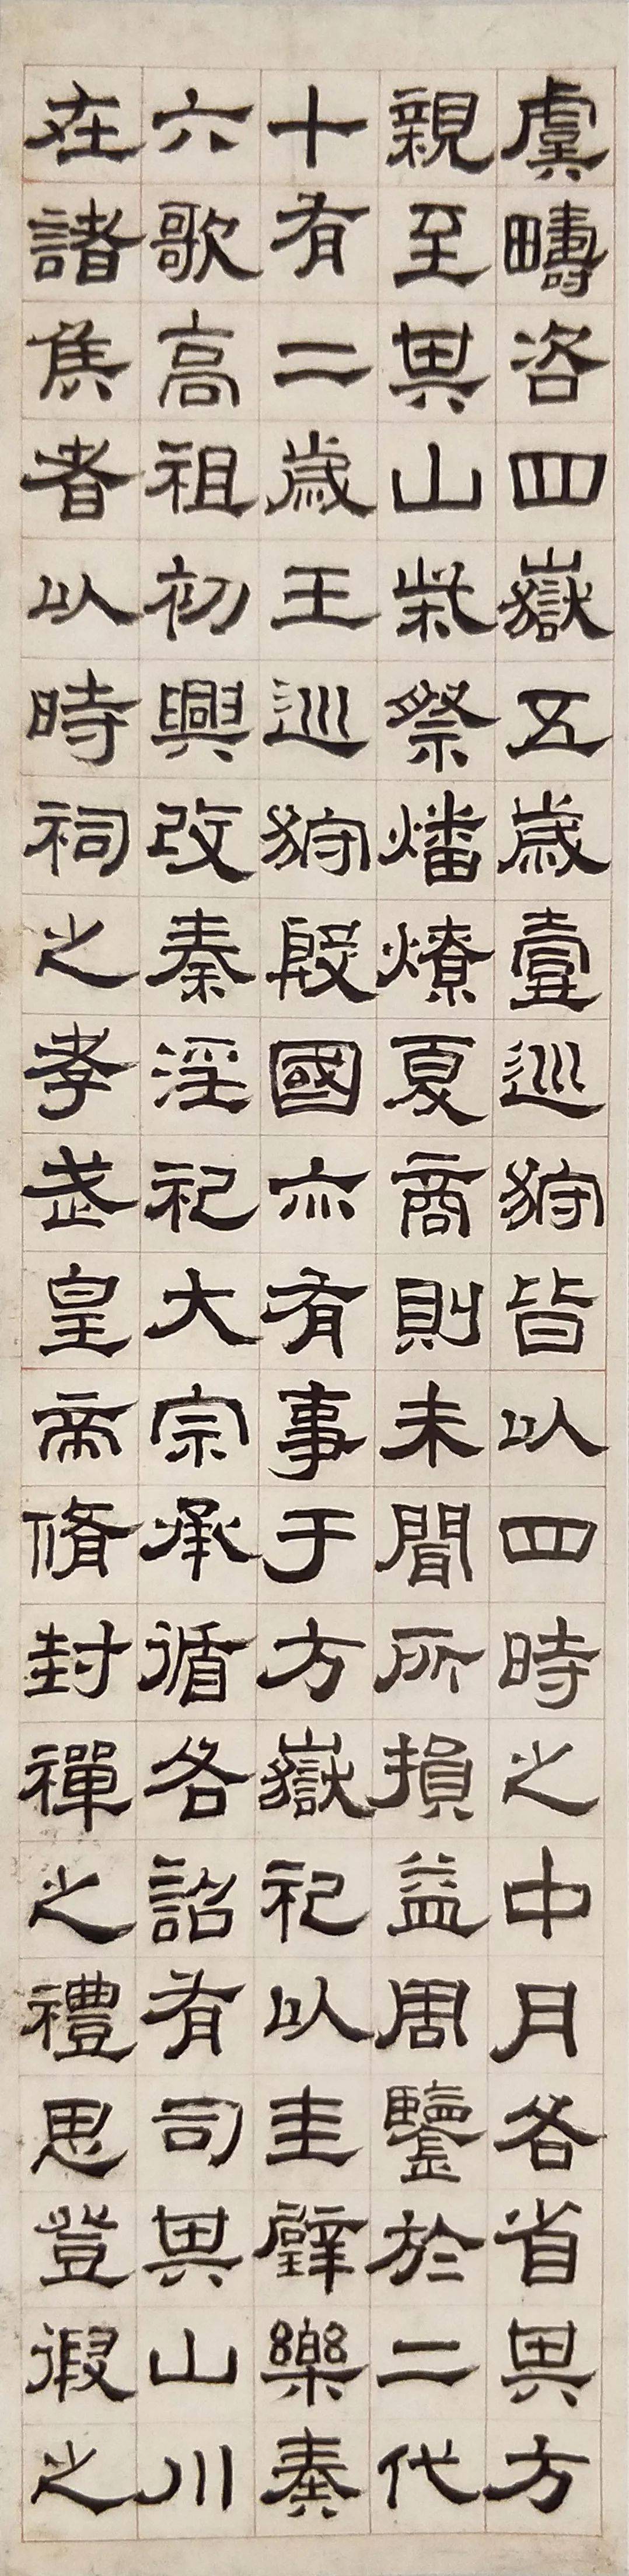 虞疇咨四嶽五歲壹巡狩皆以四時之中月各省其方
親至其山祡祭燔燎夏商則未聞所損益周鑒於二代
十有二歲王巡狩殷國亦有事于方嶽祀以圭璧樂奏
六歌高祖初興改秦淫祀大宗承循各詔有司其山川
在諸侯者以時祠之孝武皇帝脩封禪之禮思登徦之